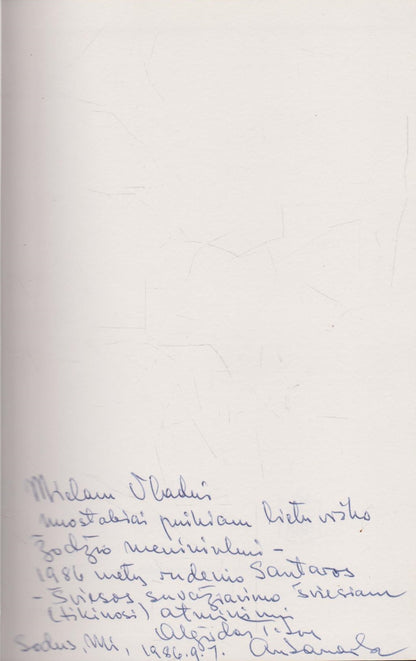 Mielam Vladui
nuostabiai puikiam lietuviško
žodžio menininkui –
1986 metų rudens Santaros
– Šviesos suvažiavimo šviesiam
(tikiuosi) atminimui
Algirdas
Sodus, Mi, 1986.9.7.